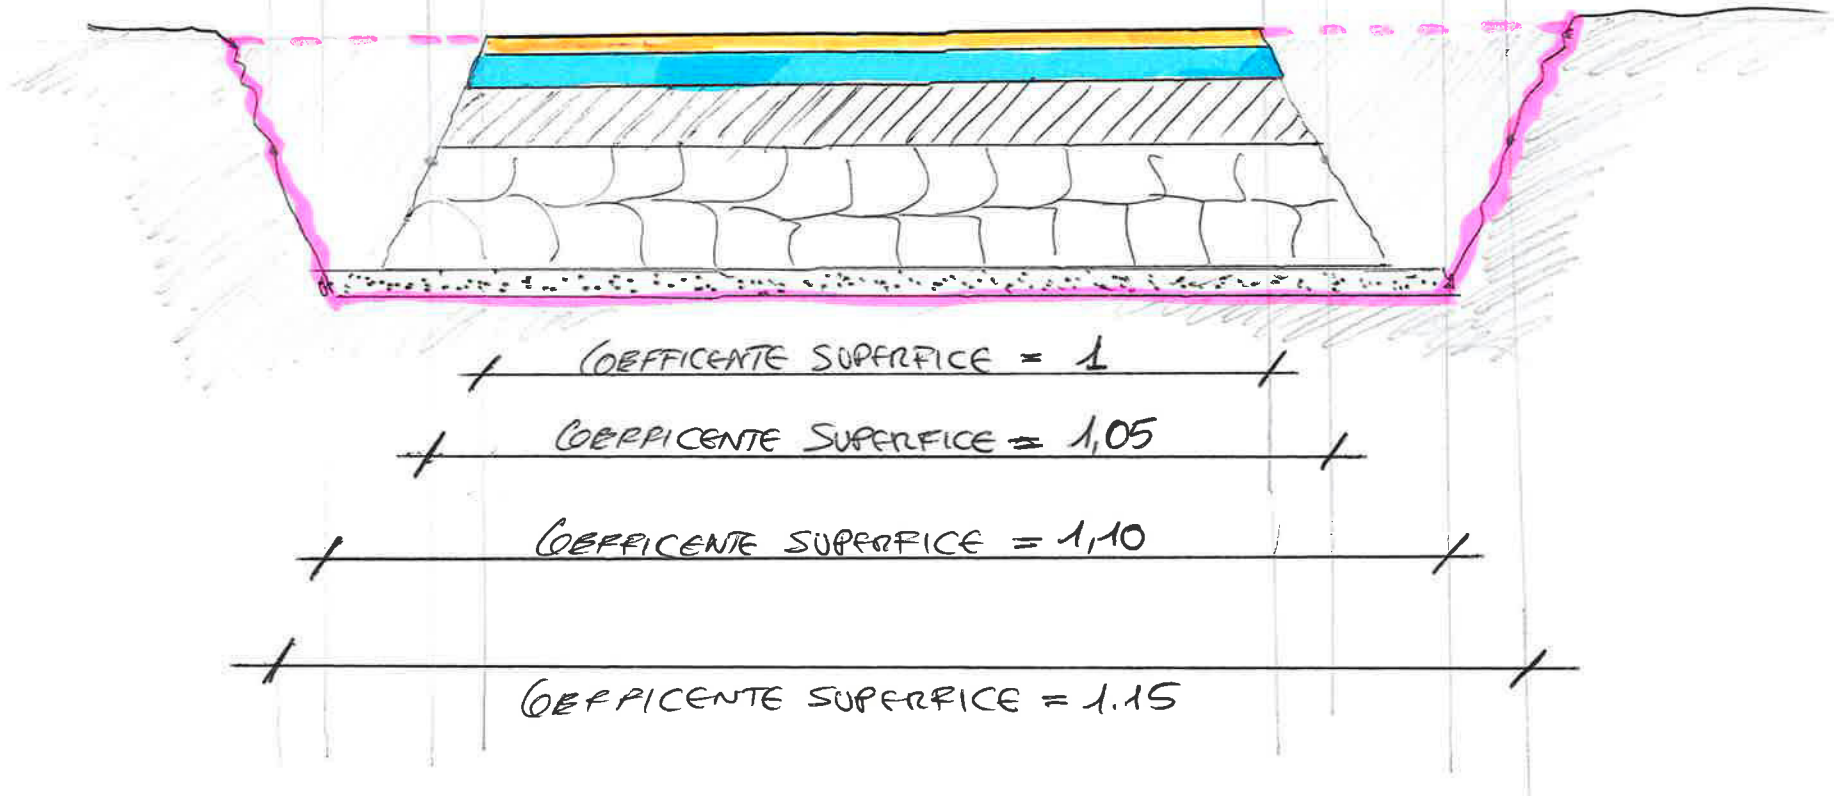 COEFFICENTE SUPERFICE = 1
COEFFICENTE SUPERFICE = 1,05
COEFFICENTE SUPERFICE = 1,10
COEFFICENTE SUPERFICE = 1.15